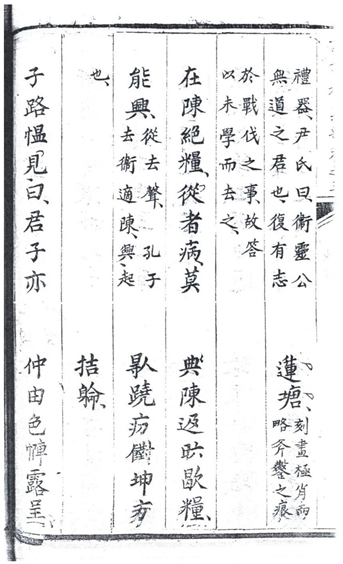 禮器、尹氏曰衛靈公
無道之君也、復有志
於戰伐之事、故答
以未學而去之、
在陳絕糧、從者病、莫
能興、從去聲、孔子
去衛適陳、興、起
也、
子路慍見、曰、君子亦
蓮塘、刻畫極肖而
略斧鑿之痕
典陳返歇糧
蹺疠坤方
拮
仲由色露呈